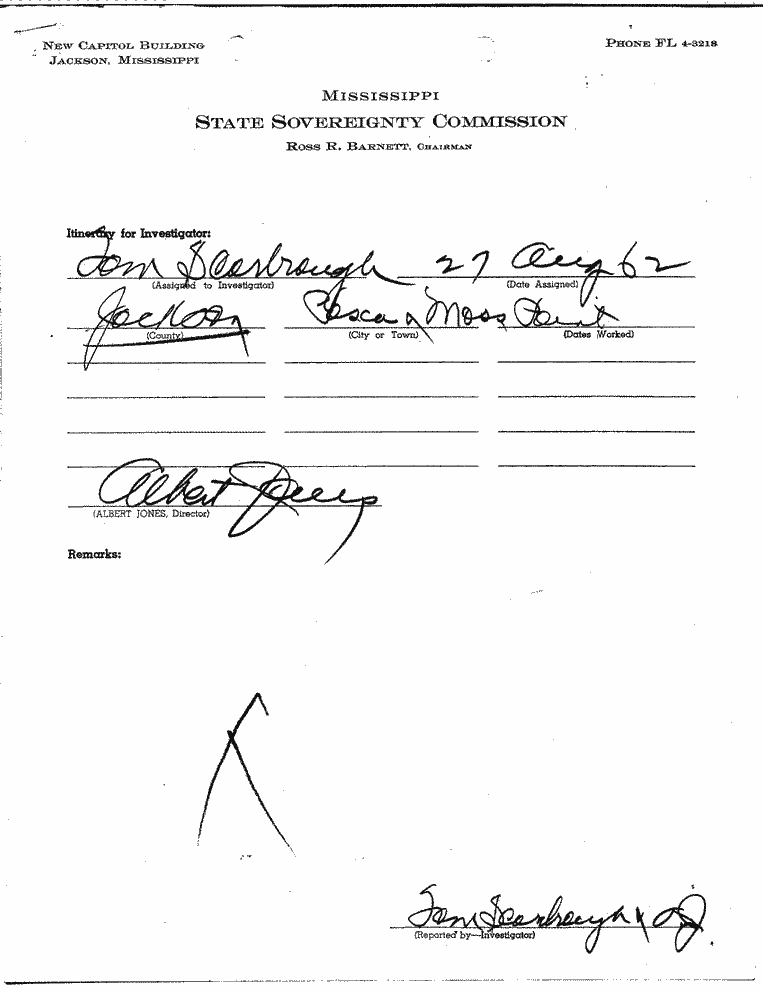 NEW CAPITOL BUILDING
JACKSON, MISSISSIPPI
PHONE FL 4-3218
MISSISSIPPI
STATE SOVEREIGNTY COMMISSION
ROSS R. BARNETT, CHAIRMAN
Itinerary for Investigator:
Tom Scarbrough 27 Aug 62
(Assigned to Investigator) (Date Assigned)
Jackson Pasca & Moss Point
(County) (City or Town) (Dates Worked)
Albert Jones
(ALBERT JONES, Director)
Remarks:
Tom Scarbrough
(Reported by—Investigator)